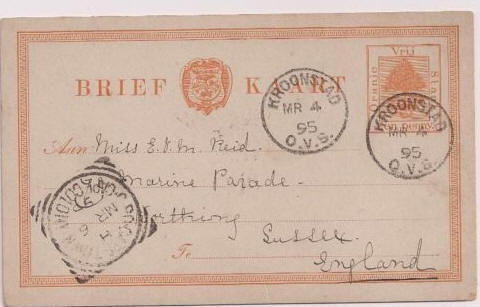 BRIEF KAART
Vrij
Oranje
Staat
KROONSTAD
MR 4
95
O.V.S.
KROONSTAD
MR 4
95
O.V.S.
Aan Miss E. V. M. Reid.
Marine Parade.
Worthing
Te Sussex
England
MR 6